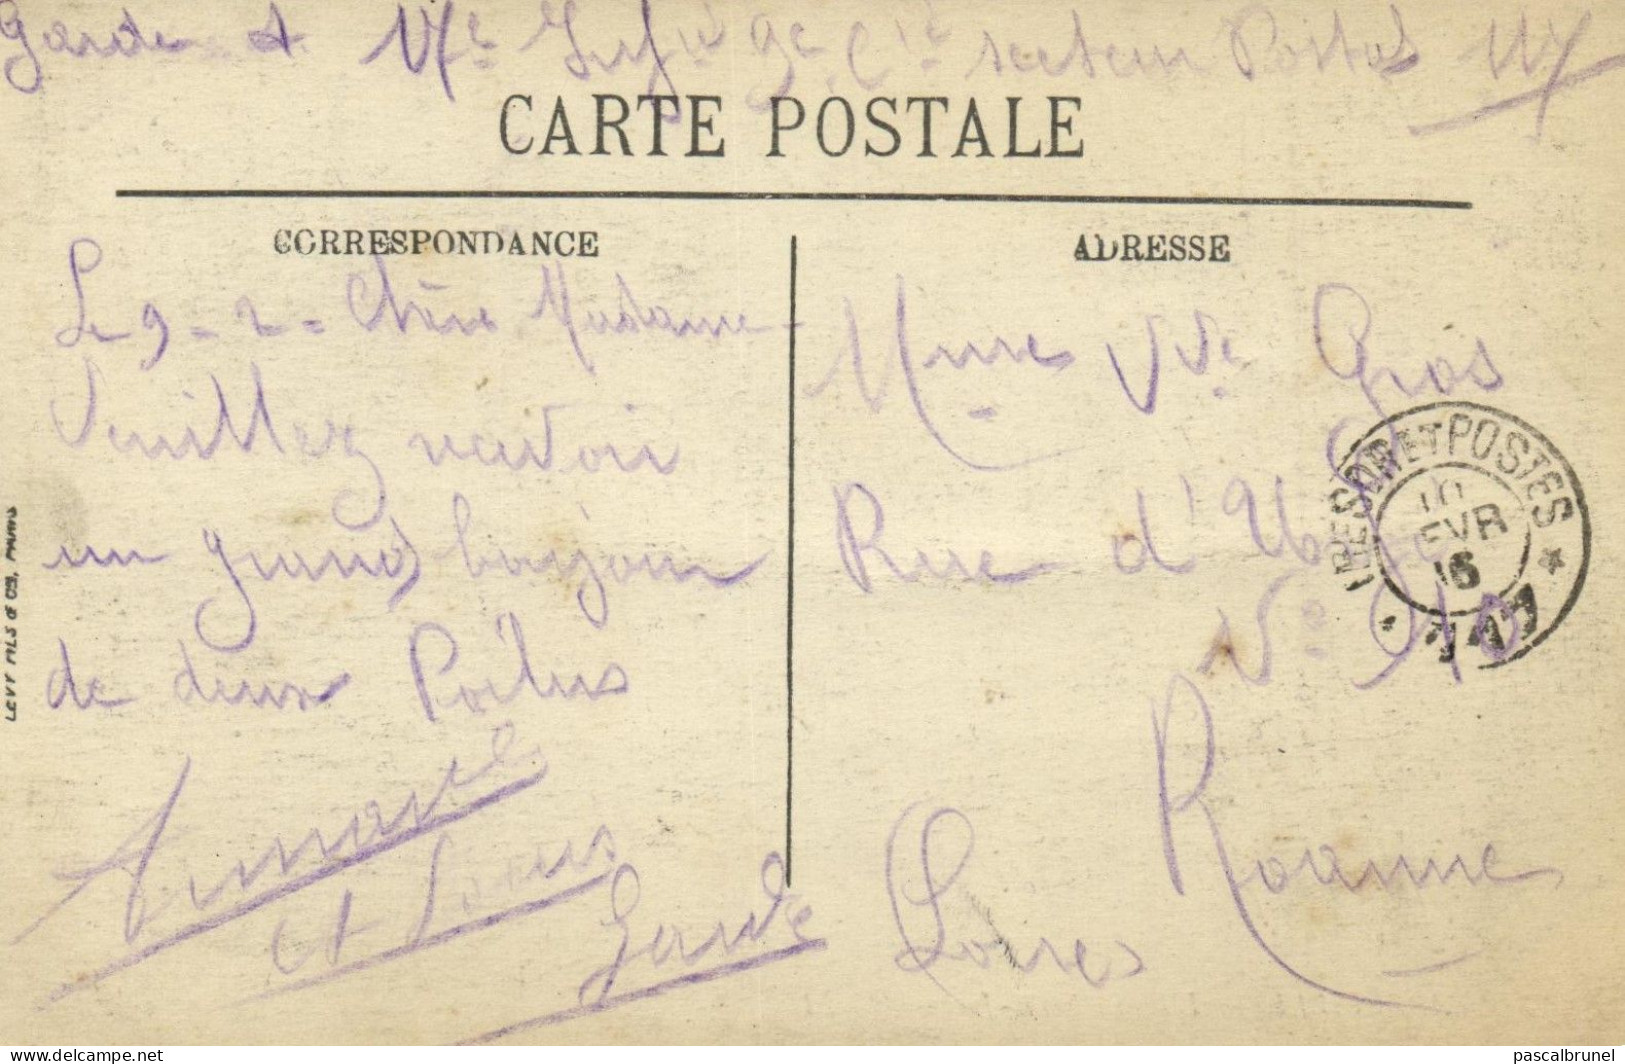 Garde A
9e Cie secteur Postal
CARTE POSTALE
CORRESPONDANCE
Le 9-2- Chère Madame
Veuillez
un grand bonjour
de deux Poilus
Armand
et Louis
Garde
ADRESSE
Mme Vve Gros
Rue d'
No 90
Roanne
Loire
TRESOR ET POSTES
10
FEVR
16
* 147 *
LEVY FILS & Cie, PARIS
delcampe.net
pascalbrunel